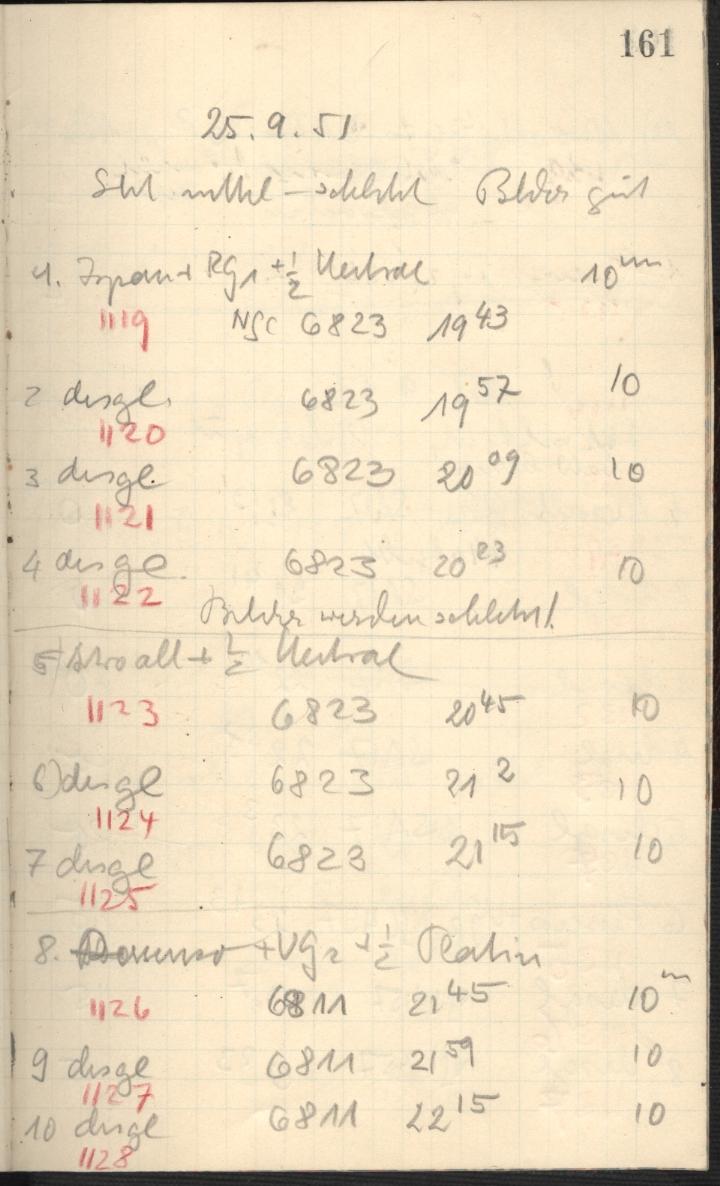 161
25.9.51
Sicht mittel – schlecht Bilder gut
1. Ispan + RG1 + 1/2 Neutral 10 m
1119 NGC 6823 19 43
2 desgl. 6823 19 57 10
1120
3 desgl. 6823 20 09 10
1121
4 desgl. 6823 20 23 10
1122
Bilder werden schlecht!
5) + 1/2 Neutral
1123 6823 20 45 10
6) desgl 6823 21 2 10
1124
7 desgl 6823 21 15 10
1125
8. + VG2 + 1/2 Platin
1126 6811 21 45 10 m
9 desgl 6811 21 59 10
1127
10 desgl 6811 22 15 10
1128